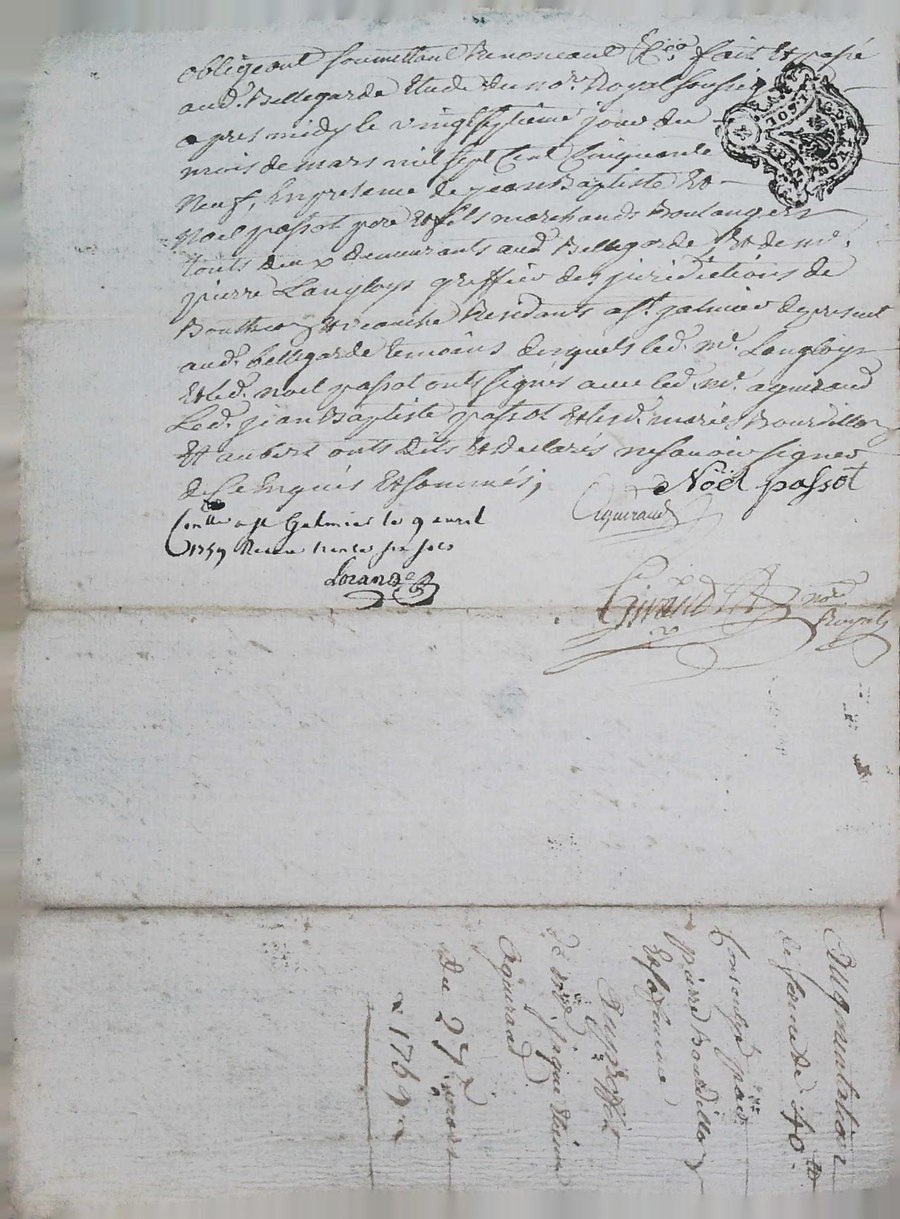 obligeant soumettant Renonceant &c. fait Et passé
aud. Bellegarde Etude du no.re Royal soussi
apres midy le vingt septieme jour du
mois de mars mil sept Cent Cinquante
Neuf, En presence de jean Baptiste Et
Noel passot pere Et fils marchands Boulangers
touts deux demeurants aud. Bellegarde, Et de m.e
pierre Langloys greffier des juridictions de
Residants a S.t galmier de present
aud. bellegarde temoins desquels led. m.e Langloys
Et led. noel passot ont signés avec led. m.e aguiraud
Led. jean Baptiste passot Et led. marie Bourdillon
Et aubert onts dits Et declarés ne savoir signer
de Ce Enquis Et sommés;
Noël passot
aguiraud
Con.llé a S.t Galmier le 9 avril
1759 Receu trente six sols
Lorand
Giraud no.re
Royal
GEN DE LYON
Augmentation
de ferme de 40 tt
Consentye par
pierre Bourdillon
Et sa femme
Au proffit
de m.re jaque
Aguiraud
Du 27 mars
1769